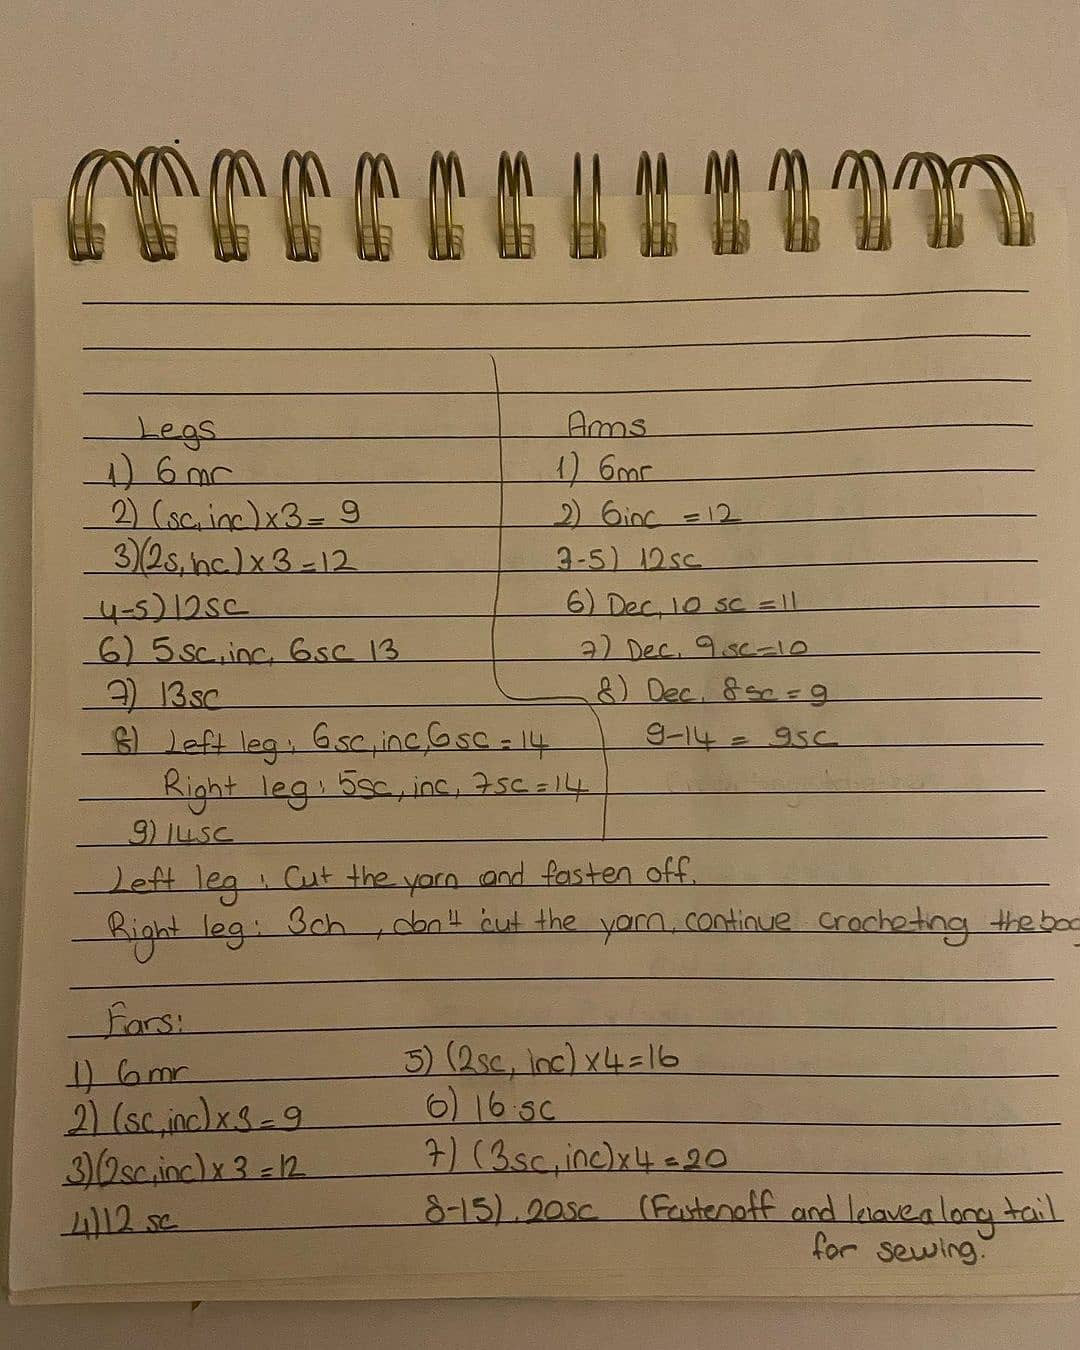 Legs
1) 6 mr
2) (sc, inc) x3 = 9
3) (2s, nc) x 3 = 12
4-5) 12sc
6) 5sc, inc, 6sc 13
7) 13sc
8) Left leg: 6sc, inc, 6sc = 14
Right leg: 5sc, inc, 7sc = 14
9) 14sc
Arms
1) 6mr
2) 6inc = 12
3-5) 12sc
6) Dec, 10 sc = 11
7) Dec, 9 sc = 10
8) Dec, 8sc = 9
9-14 = 9sc
Left leg: Cut the yarn and fasten off.
Right leg: 3ch, don't cut the yarn, continue crocheting the
Ears:
1) 6mr
2) (sc, inc) x 3 = 9
3) (2sc, inc) x 3 = 12
4) 12 sc
5) (2sc, inc) x4 = 16
6) 16 sc
7) (3sc, inc) x4 = 20
8-15). 20sc (Fastenoff and leave a long tail
for sewing.